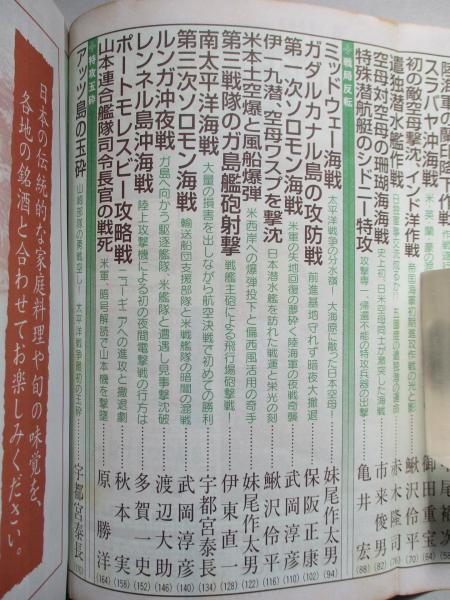 スラバヤ沖海戦
初の敵空母撃沈、インド洋作戦
鰺沢伶平
遣独潜水艦作戦
赤木隆司
空母対空母の珊瑚海海戦 史上初、日米空母同士が激突した海戦
市来俊男 (82)
特殊潜航艇のシドニー特攻 攻撃専一 帰還不能の特攻兵器の出撃
亀井 宏 (88)
◆戦局反転
ミッドウェー海戦 太平洋戦争の分水嶺!大海原に散った日本空母!
妹尾作太男 (94)
ガダルカナル島の攻防戦 前進基地守れず暗夜大撤退
保阪正康 (102)
第一次ソロモン海戦 米軍の失地回復の夢砕く陸海軍の夜戦奇襲
武岡淳彦 (110)
伊一九潜、空母ワスプを撃沈 日本潜水艦を訪れた戦運と栄光の刻
鰺沢伶平 (116)
米本土空爆と風船爆弾 米西岸への爆弾投下と偏西風活用の奇手
妹尾作太男 (122)
第三戦隊のガ島艦砲射撃 戦艦主砲による飛行場砲撃戦!
伊東直一 (128)
南太平洋海戦 大量の損害を出しながら航空決戦で初めての勝利
宇都宮泰長 (134)
第三次ソロモン海戦 輸送船団支援部隊と米戦艦隊の暗闇の混戦
武岡淳彦 (140)
ルンガ沖夜戦 ガ島へ向かう駆逐艦隊、米艦隊と遭遇し見事撃沈破
渡辺大助 (146)
レンネル島沖海戦 陸上攻撃機による初の夜間電撃戦の行方は
多賀一史 (152)
ポートモレスビー攻略戦 ニューギニアへの進攻と撤退劇
秋本 実 (158)
山本連合艦隊司令長官の戦死 米軍、暗号解読で山本機を撃墜
原 勝洋 (164)
◆特攻玉砕
アッツ島の玉砕 山崎部隊の勇戦空し!太平洋戦争最初の玉砕
宇都宮泰長
日本の伝統的な家庭料理や旬の味覚を、
各地の銘酒と合わせてお楽しみください。